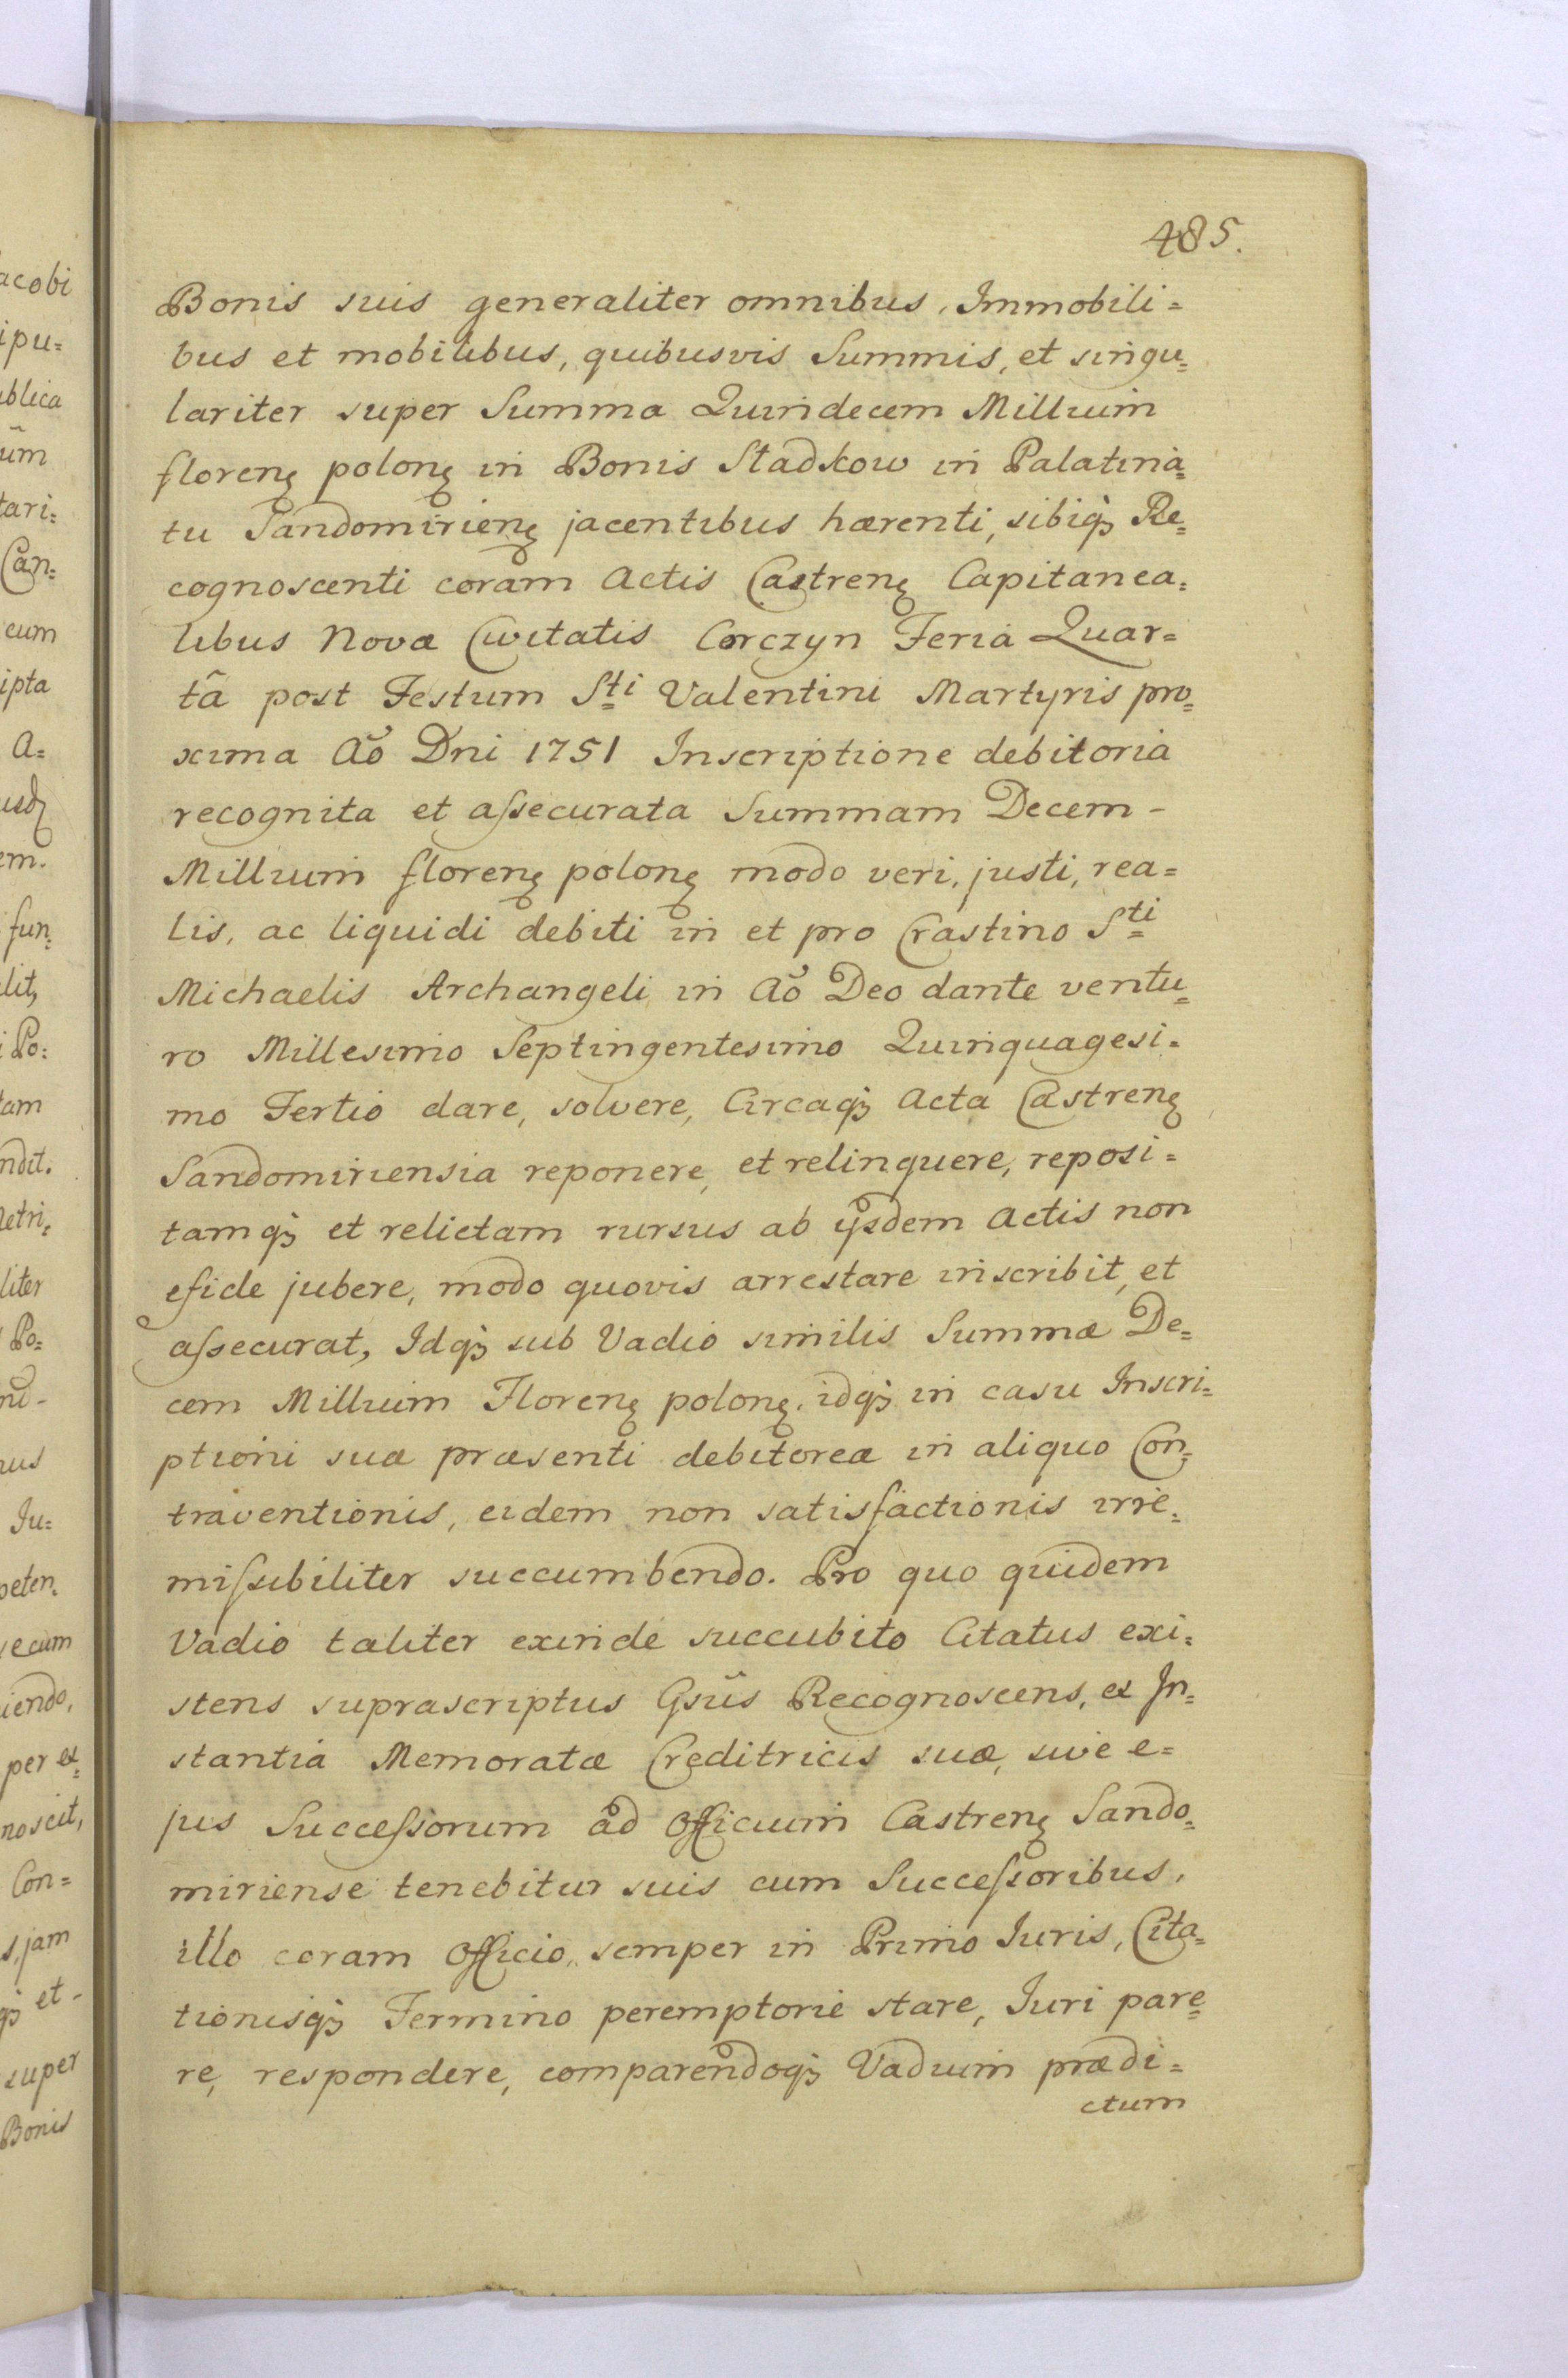 485.
Bonis suis generaliter omnibus, Immobili=
bus et mobilibus, quibusvis Summis, et singu=
lariter super Summa Quindecem Millium
florenȩ polonȩ in Bonis Stadkow in Palatina=
tu Sandomirienȩ jacentibus hærenti, sibiqꝫ Re=
cognoscenti coram Actis Castrenȩ Capitanea=
libus Novæ Civitatis Corczyn Feria Quar=
tã post Festum Sti Valentini Martyris pro=
xima Aõ Dni 1751 Inscriptione debitoria
recognita et aſsecurata Summam Decem -
Millium florenȩ polonȩ modo veri, justi, rea=
lis, ac liquidi debiti in et pro Crastino Sti
Michaelis Archangeli in Aõ Deo dante ventu=
ro Millesimo Septingentesimo Quinquagesi=
mo Tertio dare, solvere, Circaqꝫ Acta Castrenȩ
Sandomiriensia reponere, et relinquere, reposi=
tamqꝫ et relictam rursus ab ijsdem Actis non
efide jubere, modo quovis arrestare inscribit, et
aſsecurat, Idqꝫ sub Vadio similis Summæ De=
cem Millium Florenȩ polonȩ, idqꝫ in casu Inscri=
ptioni suæ præsenti debitoreæ in aliquo Con=
traventionis, eidem non satisfactionis irre=
miſsibiliter succumbendo. Pro quo quidem
Vadio taliter exinde succubito Citatus exi=
stens suprascriptus Gsũs Recognoscens, ex In=
stantia Memoratæ Creditricis suæ, sive e=
jus Succeſsorum ad Officium Castrenȩ Sando=
miriense tenebitur suis cum Succeſsoribus,
illo coram Officio, semper in Primo Iuris, Cita=
tionisqꝫ Termino peremptorie stare, Iuri pare=
re, respondere, comparendoqꝫ Vadium prædi=
ctum